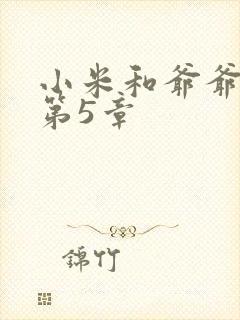 小米和爷爷
第5章
錦竹